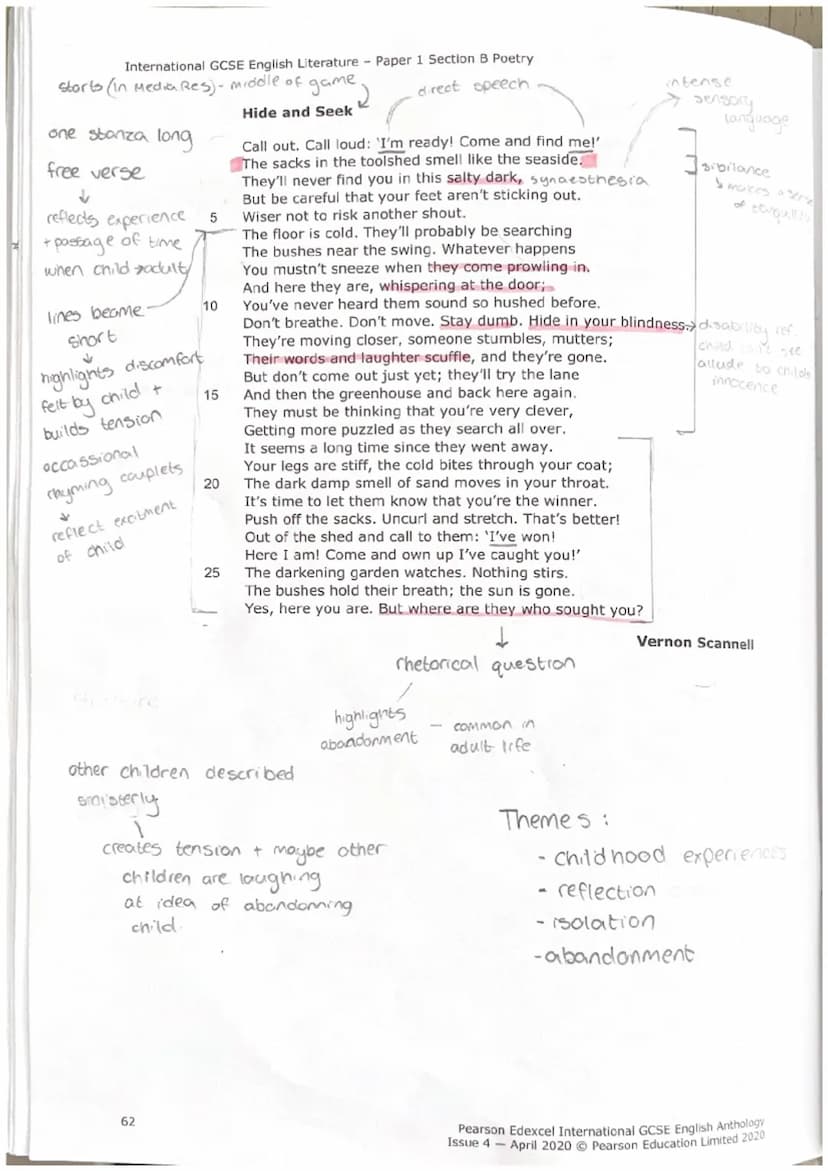 International GCSE English Literature – Paper 1 Section B Poetry
starts (in Media Res) - middle of game
direct speech
intense
sensory
language
Hide and Seek
one stanza long
free verse
reflects experience
+ passage of time
when child → adult
lines became
short
highlights discomfort
felt by child +
builds tension
occassional
rhyming couplets
reflect excitment
of child
Call out. Call loud: 'I'm ready! Come and find me!'
The sacks in the toolshed smell like the seaside.
They'll never find you in this salty dark, synaesthesia
But be careful that your feet aren't sticking out.
5 Wiser not to risk another shout.
The floor is cold. They'll probably be searching
The bushes near the swing. Whatever happens
You mustn't sneeze when they come prowling in.
And here they are, whispering at the door;
10 You've never heard them sound so hushed before.
Don't breathe. Don't move. Stay dumb. Hide in your blindness.
They're moving closer, someone stumbles, mutters;
Their words and laughter scuffle, and they're gone.
But don't come out just yet; they'll try the lane
15 And then the greenhouse and back here again.
They must be thinking that you're very clever,
Getting more puzzled as they search all over.
It seems a long time since they went away.
Your legs are stiff, the cold bites through your coat;
20 The dark damp smell of sand moves in your throat.
It's time to let them know that you're the winner.
Push off the sacks. Uncurl and stretch. That's better!
Out of the shed and call to them: 'I've won!
Here I am! Come and own up I've caught you!'
25 The darkening garden watches. Nothing stirs.
The bushes hold their breath; the sun is gone.
Yes, here you are. But where are they who sought you?
Vernon Scannell
sibilance
makes a sense
of
disability ref
child see
allude to childs
innocence
rhetorical question
highlights
abandonment
– common in
adult life
other children described
sinisterly
creates tension + maybe other
children are laughing
at idea of abandonning
child.
Themes:
- childhood experiences
- reflection
- isolation
- abandonment
62
Pearson Edexcel International GCSE English Anthology
Issue 4 – April 2020 © Pearson Education Limited 2020